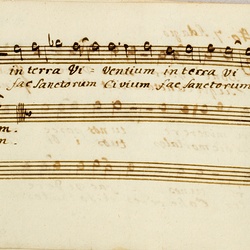 in terra Vi = Ventium in terra vi
fac Sanctorum Civium fac Sanctorum
m.
n.